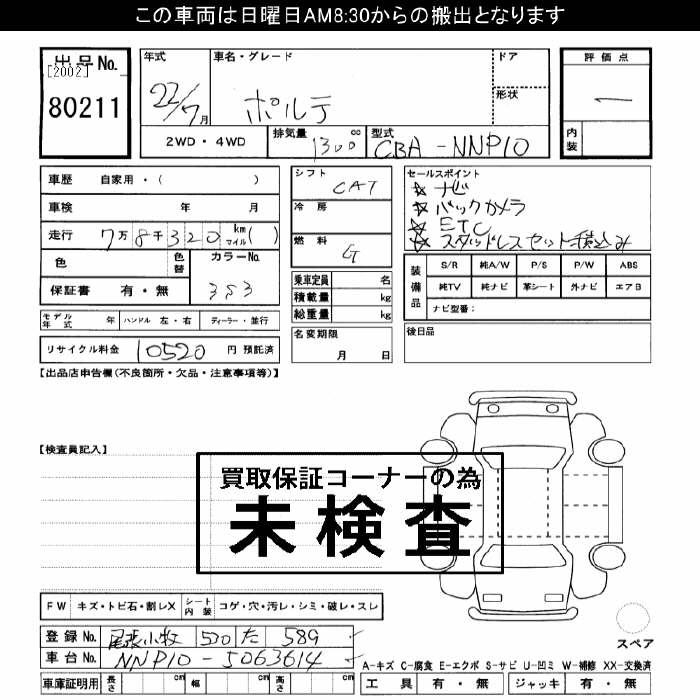 この車両は日曜日AM8:30からの搬出となります
出品No.
[2002]
80211
年式
22/7月
車名・グレード
ポルテ
ドア
形状
評価点
内装
2WD・4WD
排気量 1300 cc
型式 CBA-NNP10
車歴 自家用・( )
車検 年 月
走行 7万8千320 km マイル( )
色 色替 カラーNo.
353
保証書 有・無
モデル年式 年 ハンドル 左・右 ディーラー・並行
リサイクル料金 10520 円 預託済
シフト CAT
冷房
燃料 G
乗車定員 名
積載量 kg
総重量 kg
名変期限
月 日
セールスポイント
☆ ナビ
☆ バックカメラ
☆ ETC
☆ スタッドレスセット積込み
装備品
S/R 純A/W P/S P/W ABS
純TV 純ナビ 革シート 外ナビ エアB
ナビ型番:
後日品
【出品店申告欄(不良箇所・欠品・注意事項等)】
【検査員記入】
買取保証コーナーの為
未検査
FW キズ・トビ石・割レX シート内装 コゲ・穴・汚レ・シミ・破レ・スレ
登録No. 尾張小牧 530 た 589
車台No. NNP10-5063614
車庫証明用 長さ cm 幅 cm 高さ cm
スペア
A-キズ C-腐食 E-エクボ S-サビ U-凹ミ W-補修 XX-交換済
工具 有・無 ジャッキ 有・無